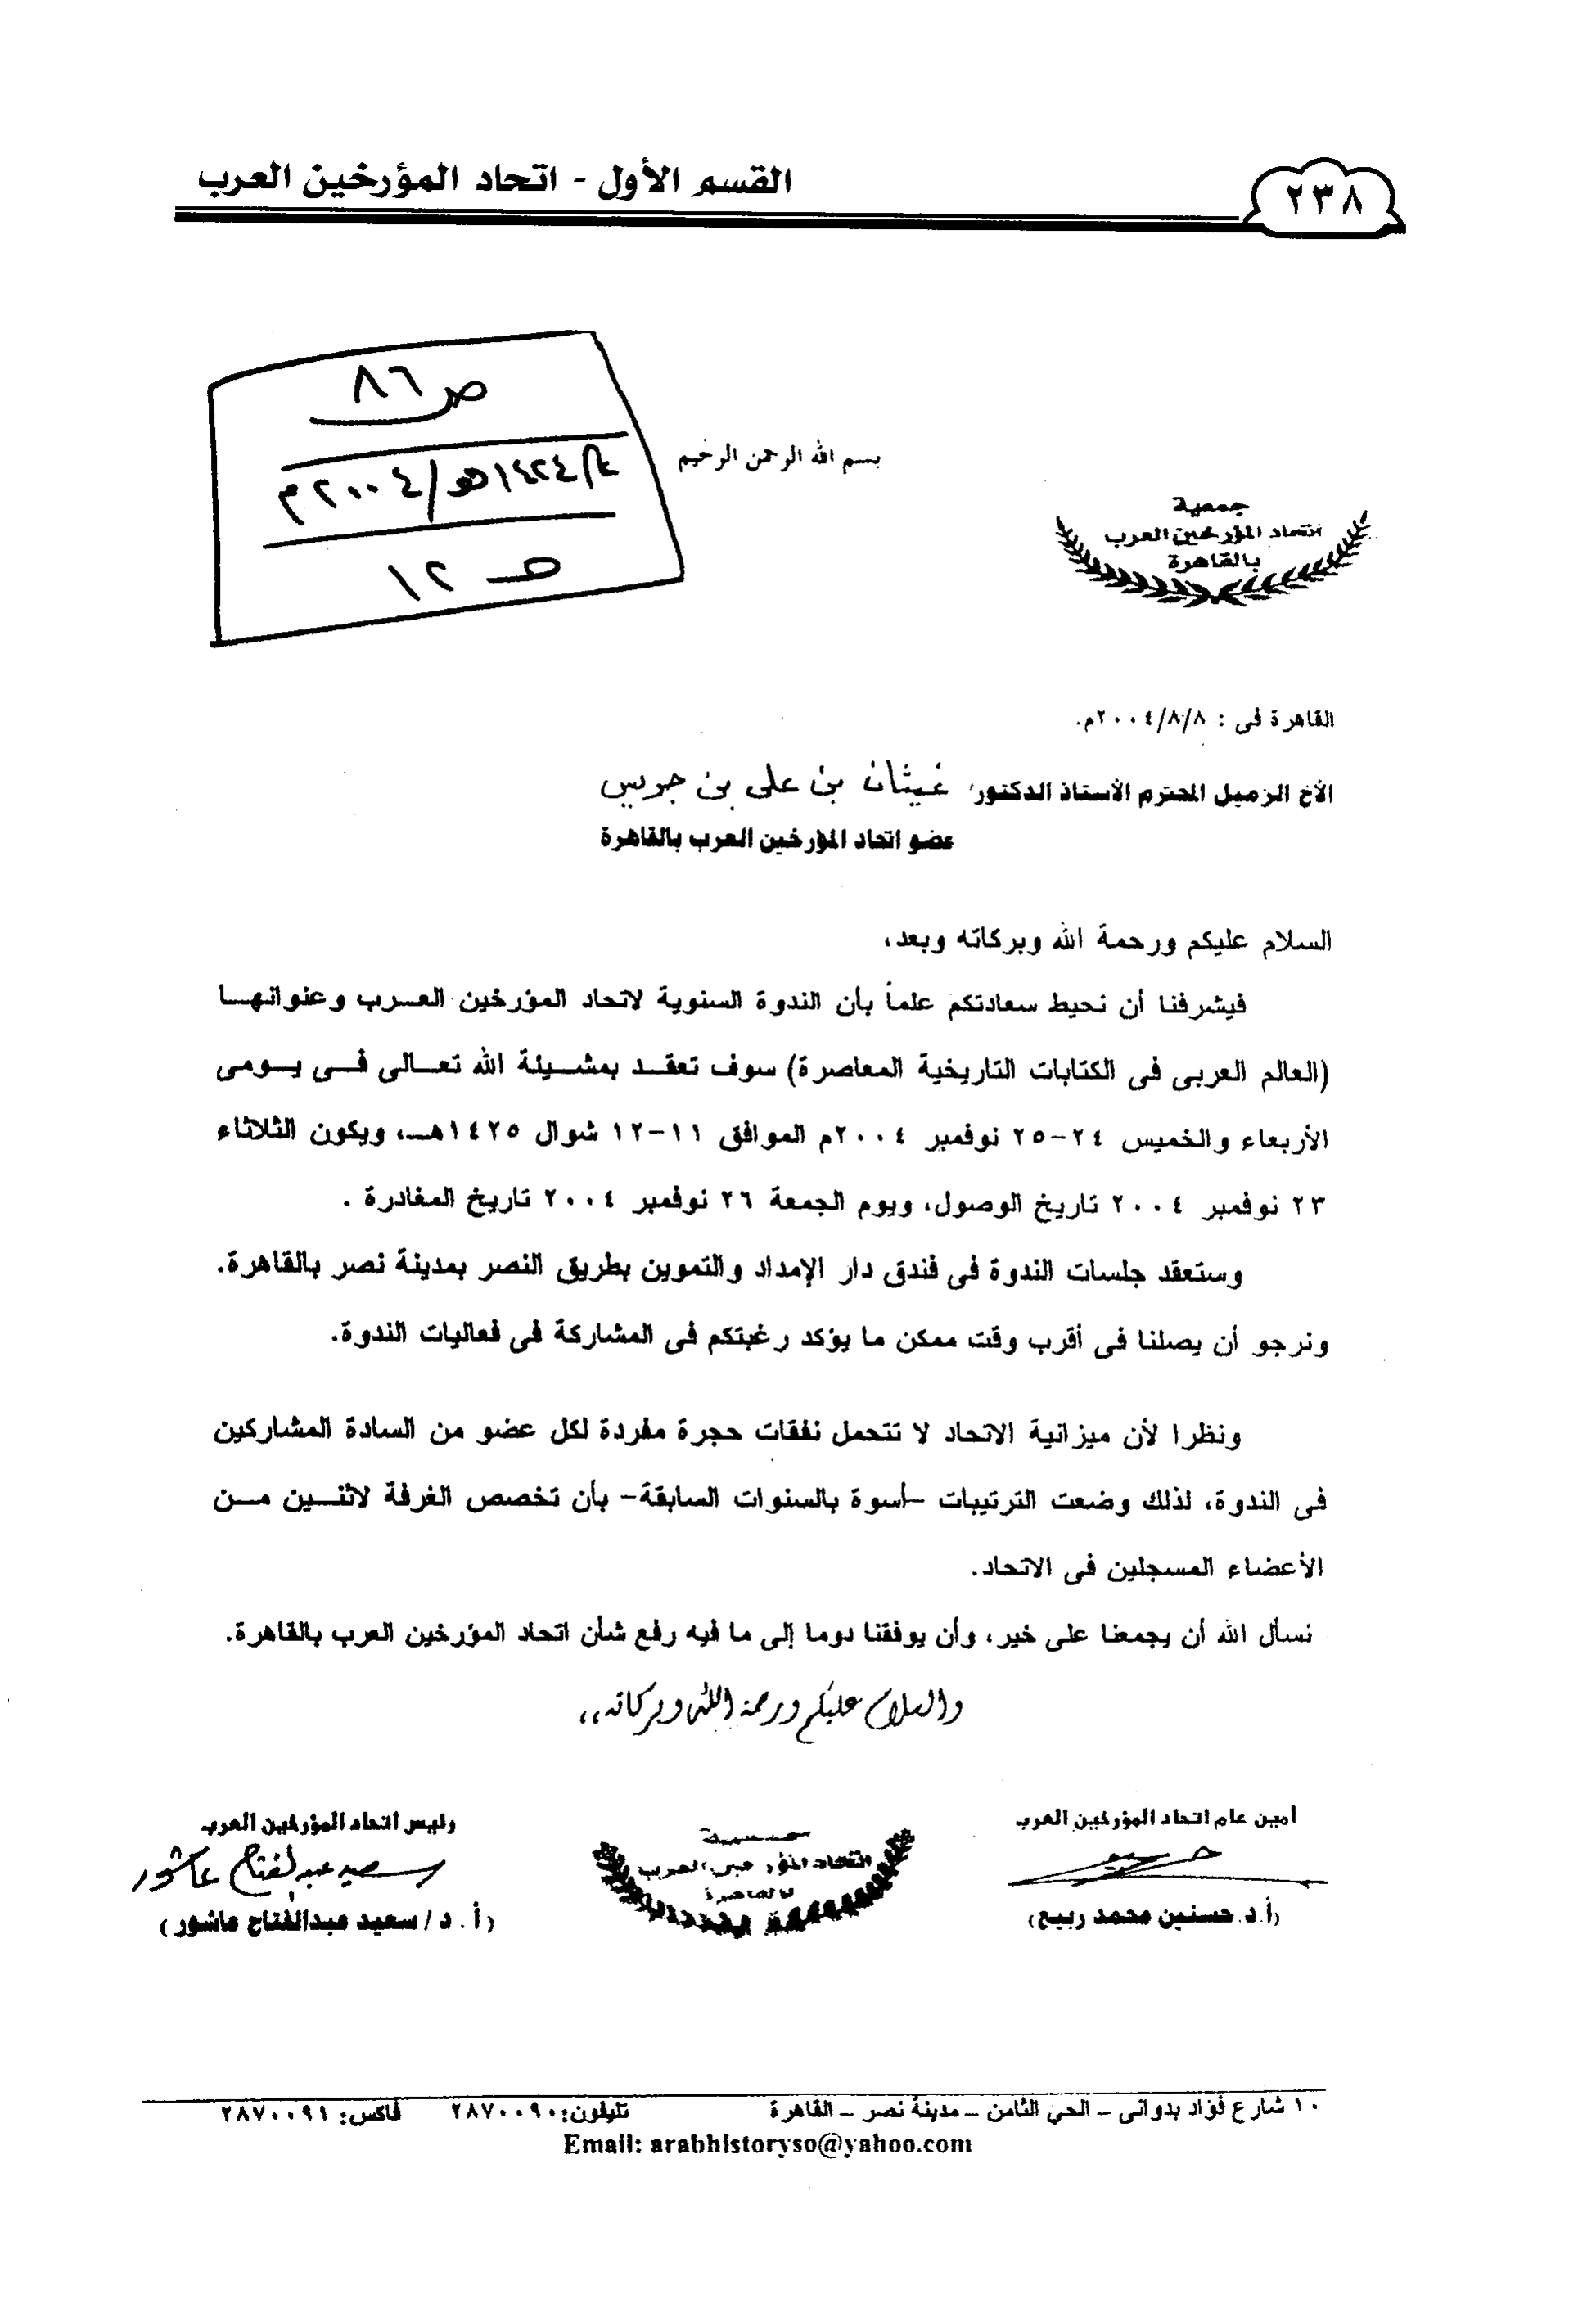 ٢٣٨
القسم الأول - اتحاد المؤرخين العرب
ص ٨٦
١٤٢٤هـ/٢٠٠٤م
١٢
بسم الله الرحمن الرحيم
جمعية
اتحاد المؤرخين العرب
بالقاهرة
القاهرة فى : ٢٠٠٤/٨/٨م.
الأخ الزميل المحترم الأستاذ الدكتور/ غيثان بن على بن جريس
عضو اتحاد المؤرخين العرب بالقاهرة
السلام عليكم ورحمة الله وبركاته وبعد،
فيشرفنا أن نحيط سعادتكم علماً بأن الندوة السنوية لاتحاد المؤرخين العرب وعنوانها
(العالم العربى فى الكتابات التاريخية المعاصرة) سوف تعقد بمشيئة الله تعالى فى يومى
الأربعاء والخميس ٢٤-٢٥ نوفمبر ٢٠٠٤م الموافق ١١-١٢ شوال ١٤٢٥هـ، ويكون الثلاثاء
٢٣ نوفمبر ٢٠٠٤ تاريخ الوصول، ويوم الجمعة ٢٦ نوفمبر ٢٠٠٤ تاريخ المغادرة .
وستعقد جلسات الندوة فى فندق دار الإمداد والتموين بطريق النصر بمدينة نصر بالقاهرة.
ونرجو أن يصلنا فى أقرب وقت ممكن ما يؤكد رغبتكم فى المشاركة فى فعاليات الندوة.
ونظرا لأن ميزانية الاتحاد لا تتحمل نفقات حجرة مفردة لكل عضو من السادة المشاركين
فى الندوة، لذلك وضعت الترتيبات -أسوة بالسنوات السابقة- بأن تخصص الغرفة لاثنين من
الأعضاء المسجلين فى الاتحاد.
نسأل الله أن يجمعنا على خير، وأن يوفقنا دوما إلى ما فيه رفع شأن اتحاد المؤرخين العرب بالقاهرة.
والسلام عليكم ورحمة الله وبركاته،،
أمين عام اتحاد المؤرخين العرب
(أ.د. حسنين محمد ربيع)
جمعية
اتحاد المؤرخين العرب
بالقاهرة
رئيس اتحاد المؤرخين العرب
سعيد عبدالفتاح عاشور
(أ . د / سعيد عبدالفتاح عاشور )
١٠ شارع فؤاد بدوانى – الحي الثامن – مدينة نصر – القاهرة تليفون: ٢٨٧٠٠٩٠ فاكس: ٢٨٧٠٠٩١
Email: arabhistoryso@yahoo.com